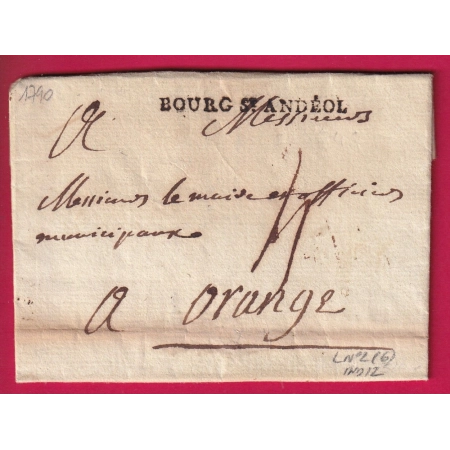 1790
BOURG ST. ANDÉOL
A Messieurs
Messieurs le maire et officiers
municipaux
a Orange
L N°2 (6)
IND 12